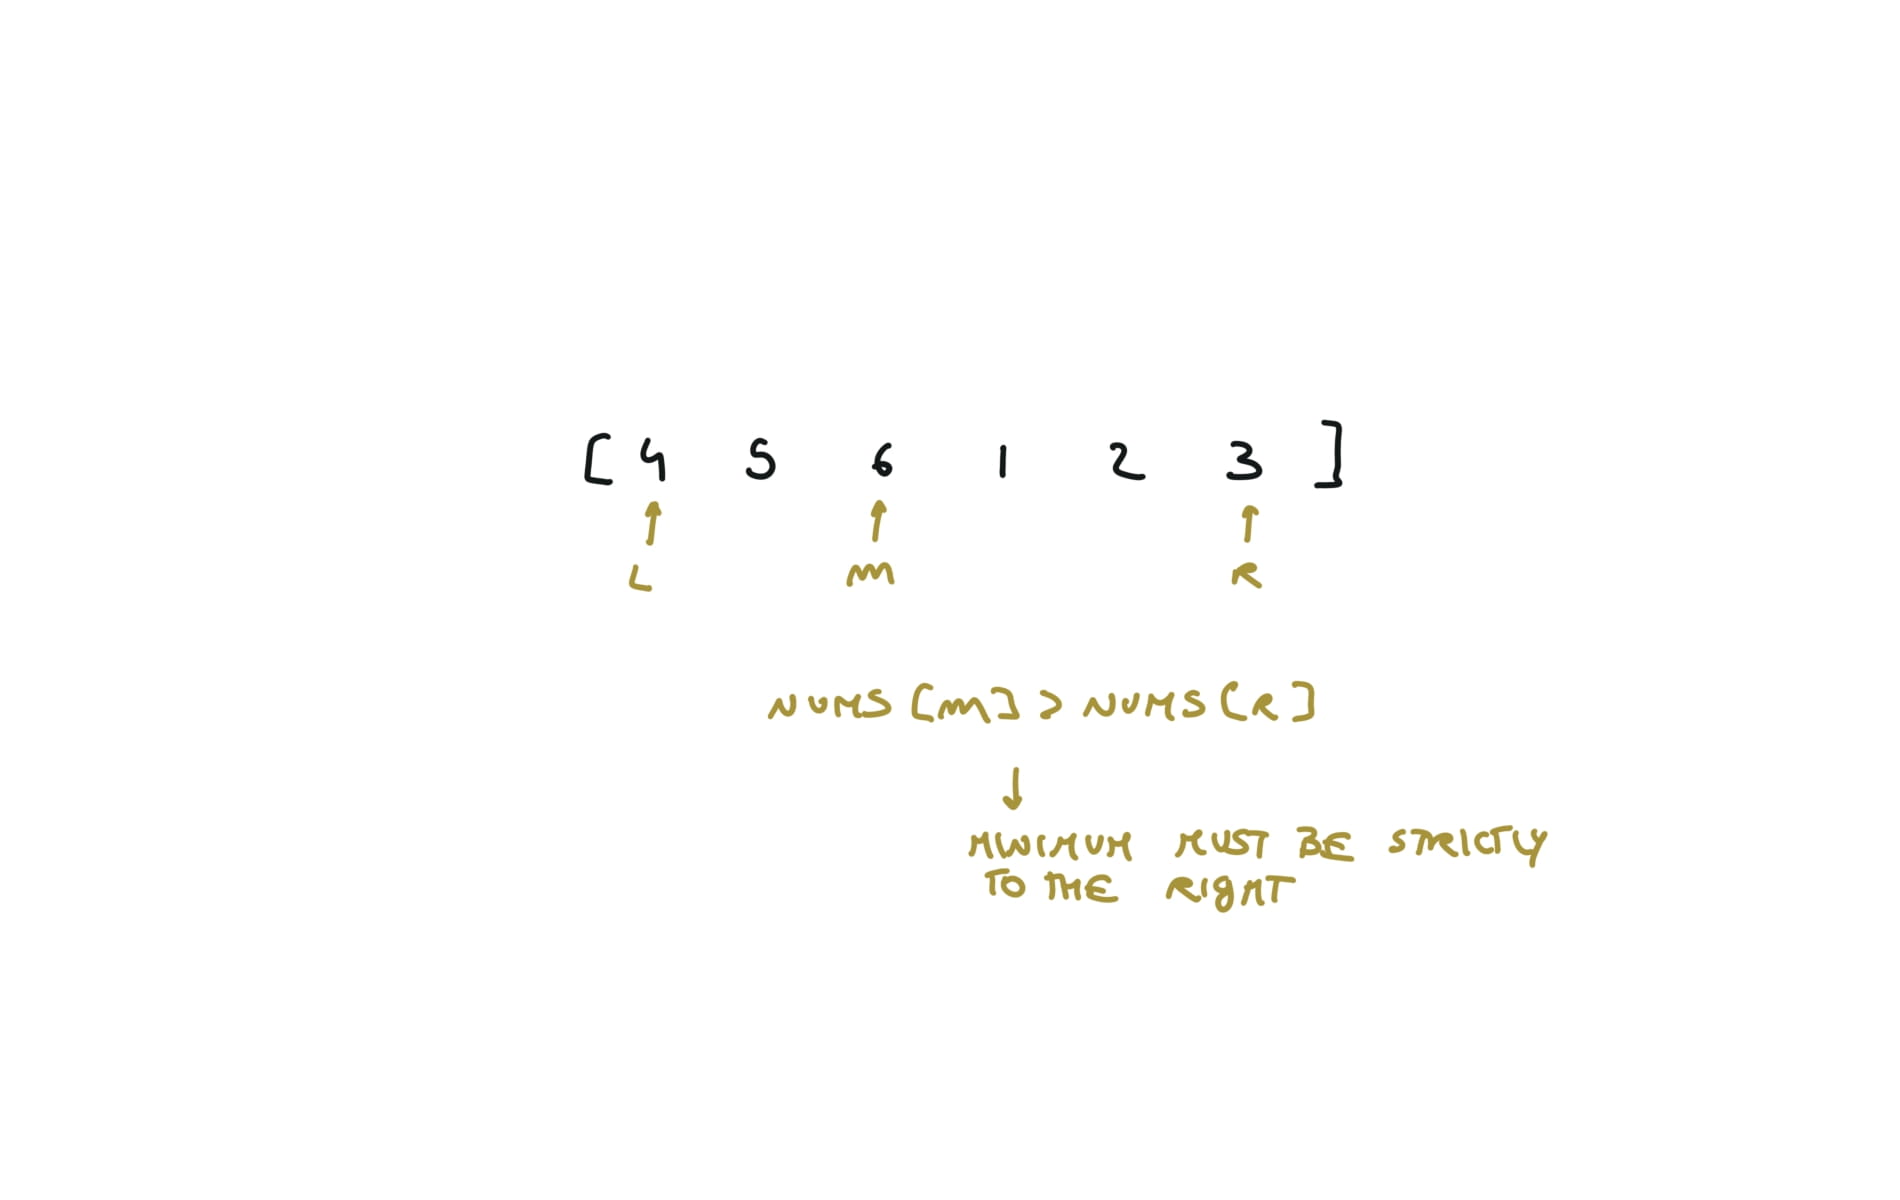 [ 4 5 6 1 2 3 ]
L M R
NUMS [M] > NUMS [R]
MINIMUM MUST BE STRICTLY
TO THE RIGHT